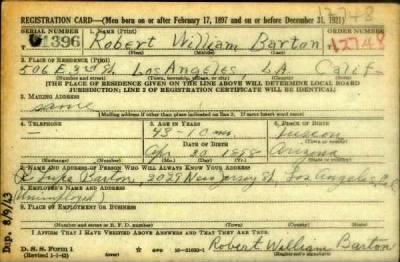 12748
REGISTRATION CARD—(Men born on or after February 17, 1897 and on or before December 31, 1921)
SERIAL NUMBER 1. NAME (Print) ORDER NUMBER
U1396 Robert William Barton 12748
(First) (Middle) (Last)
2. PLACE OF RESIDENCE (Print)
506 E. 23rd St. Los Angeles, L.A. Calif-
(Number and street) (Town, township, village, or city) (County) (State)
[THE PLACE OF RESIDENCE GIVEN ON THE LINE ABOVE WILL DETERMINE LOCAL BOARD
JURISDICTION; LINE 2 OF REGISTRATION CERTIFICATE WILL BE IDENTICAL]
3. MAILING ADDRESS
same
[Mailing address if other than place indicated on line 2. If same insert word same]
4. TELEPHONE 5. AGE IN YEARS 6. PLACE OF BIRTH
— 43-10 mo. Tucson
DATE OF BIRTH
Apr 20 1898 Arizona
(Exchange) (Number) (Mo.) (Day) (Yr.) (State or country)
7. NAME AND ADDRESS OF PERSON WHO WILL ALWAYS KNOW YOUR ADDRESS
Barton, 2029 New Jersey St, Los Angeles, Cal
8. EMPLOYER'S NAME AND ADDRESS
Unemployed
9. PLACE OF EMPLOYMENT OR BUSINESS
(Number and street or R. F. D. number) (Town) (County) (State)
I AFFIRM THAT I HAVE VERIFIED ABOVE ANSWERS AND THAT THEY ARE TRUE.
D. S. S. Form 1
(Revised 1-1-42) (over) 16—21630-1
Robert William Barton
(Registrant's signature)
Dup. 8/9/43